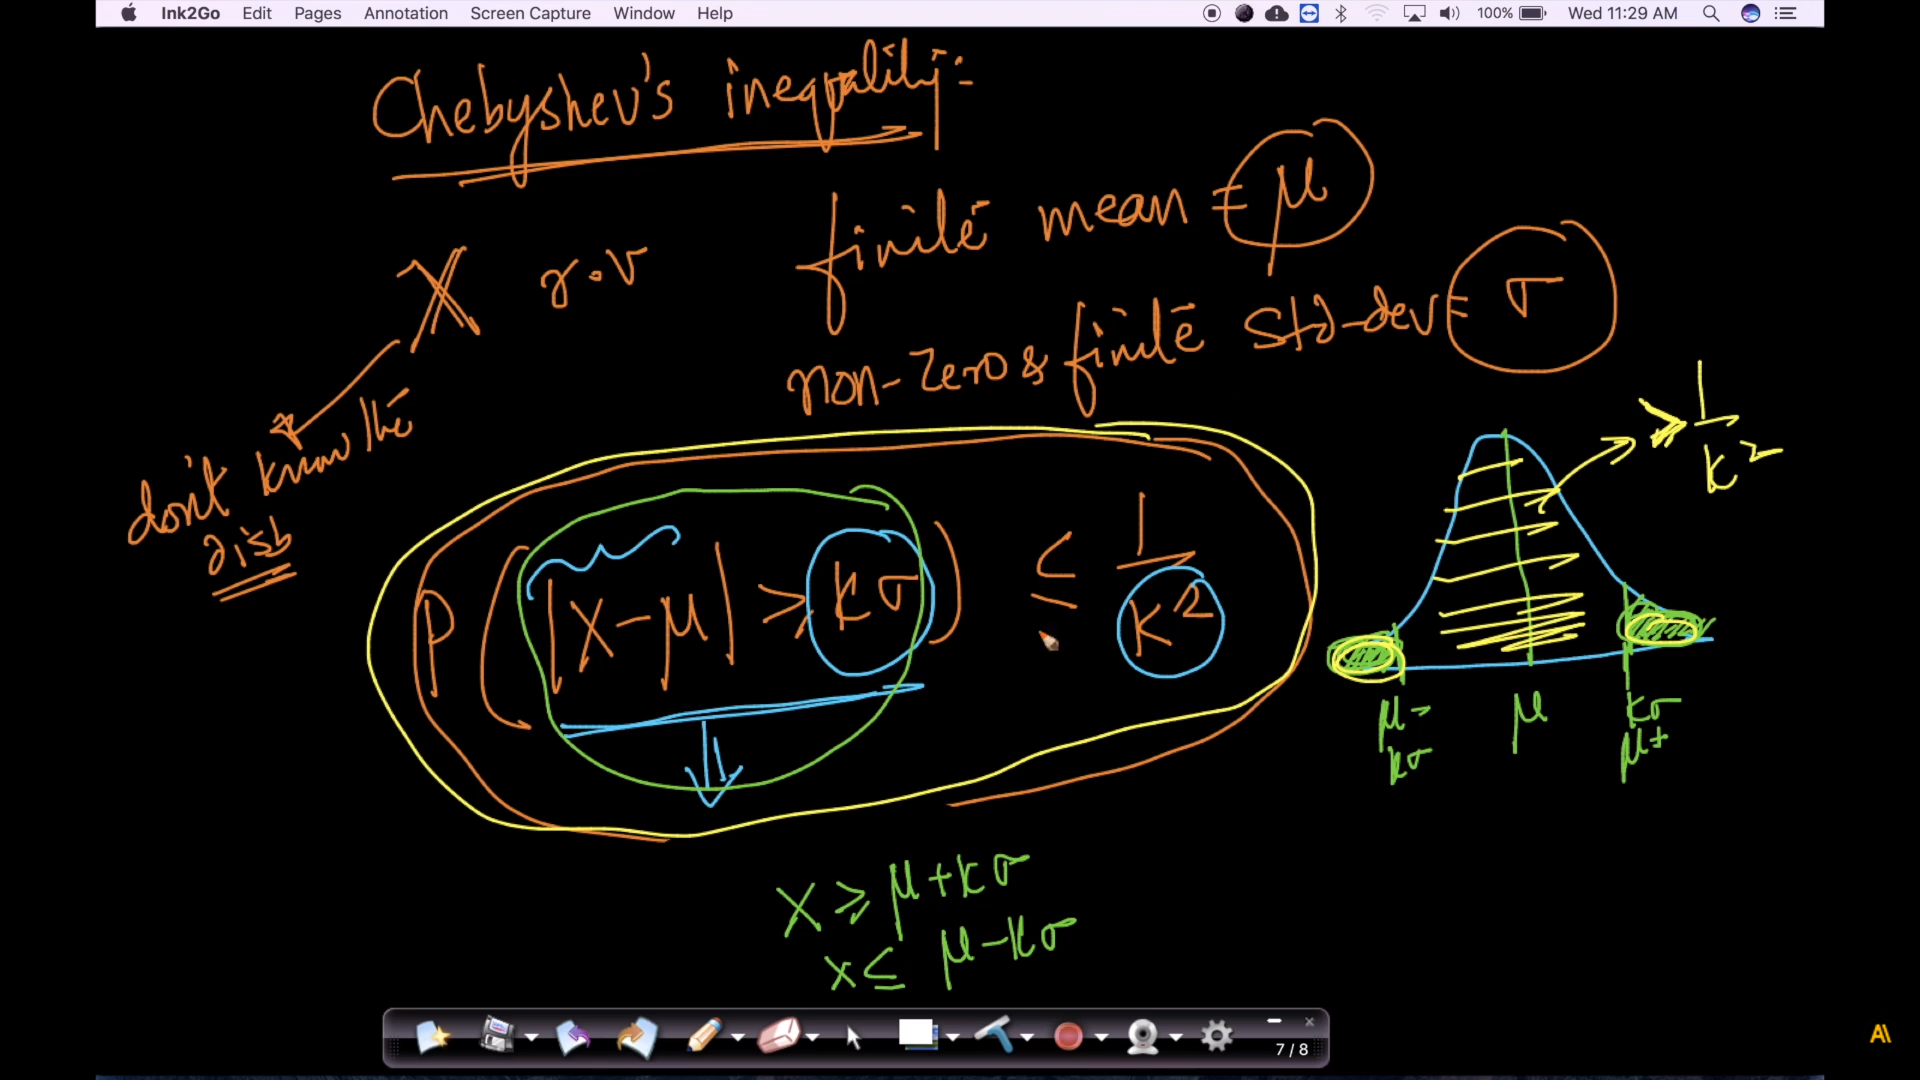 Ink2Go Edit Pages Annotation Screen Capture Window Help 100% Wed 11:29 AM
Chebyshev's inequality:-
finite mean = μ
X r.v
non-zero & finite std-dev = σ
don't know the
P(|X-μ| ≥ kσ) ≤ 1/k²
> 1/k²
μ-
kσ
μ
kσ
μ+
X ≥ μ+kσ
x ≤ μ-kσ
7 / 8